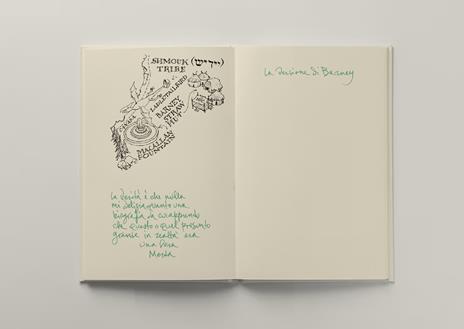 SHMOUK (יידיש)
TRIBE
BARNEY
STRAW
HUT
MACALLAN
FOUNTAIN
la verità è che nulla
mi delizia quanto una
biografia da cui apprendo
che questo o quel presunto
grande in realtà era
una vera
Merda
La versione di Barney